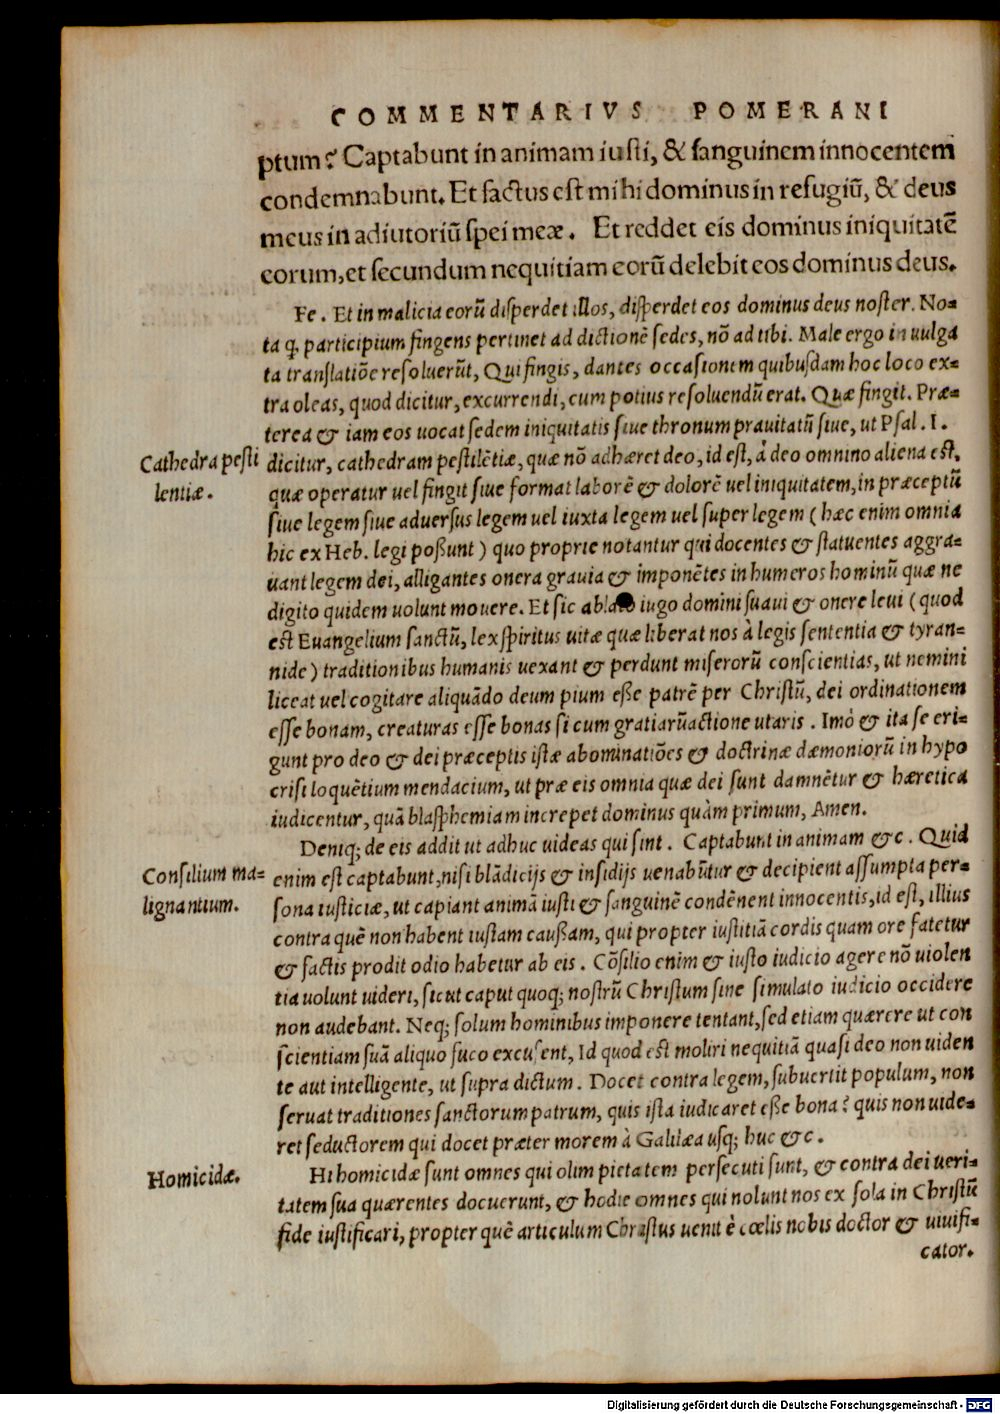 COMMENTARIVS POMERANI
ptum? Captabunt in animam iusti, & sanguinem innocentem
condemnabunt. Et factus est mihi dominus in refugiũ, & deus
meus in adiutoriũ spei meæ. Et reddet eis dominus iniquitatẽ
eorum, et secundum nequitiam eorũ delebit eos dominus deus.
Fe. Et in malicia eorũ disperdet illos, disperdet eos dominus deus noster. No=
ta q. participium fingens pertinet ad dictionẽ sedes, nõ ad tibi. Male ergo in uulga
ta translatiõe resoluerũt, Qui fingis, dantes occasionem quibusdam hoc loco ex=
tra oleas, quod dicitur, excurrendi, cum potius resoluendũ erat. Quæ fingit. Præ=
terea & iam eos uocat sedem iniquitatis siue thronum prauitatũ siue, ut Psal. I.
Cathedra pesti
lentiæ.
dicitur, cathedram pestilẽtiæ, quæ nõ adhæret deo, id est, à deo omnino aliena est,
quæ operatur uel fingit siue format laborẽ & dolorẽ uel iniquitatem, in præceptũ
siue legem siue aduersus legem uel iuxta legem uel super legem ( hæc enim omnia
hic ex Heb. legi possunt ) quo proprie notantur qui docentes & statuentes aggra=
uant legem dei, alligantes onera grauia & imponẽtes in humeros hominũ quæ ne
digito quidem uolunt mouere. Et sic ablato iugo domini suaui & onere leui ( quod
est Euangelium sanctũ, lex spiritus uitæ quæ liberat nos à legis sententia & tyran=
nide ) traditionibus humanis uexant & perdunt miserorũ conscientias, ut nemini
liceat uel cogitare aliquãdo deum pium esse patrẽ per Christũ, dei ordinationem
esse bonam, creaturas esse bonas si cum gratiarũactione utaris. Imò & ita se eri=
gunt pro deo & dei præceptis istæ abominatiões & doctrinæ dæmoniorũ in hypo
crisi loquẽtium mendacium, ut præ eis omnia quæ dei sunt damnẽtur & hæretica
iudicentur, quã blasphemiam increpet dominus quàm primum, Amen.
Deniq; de eis addit ut adhuc uideas qui sint. Captabunt in animam &c. Quid
Consilium ma=
lignantium.
enim est captabunt, nisi blãdicijs & insidijs uenabũtur & decipient assumpta per=
sona iusticiæ, ut capiant animã iusti & sanguinẽ condẽnent innocentis, id est, illius
contra quẽ non habent iustam caussam, qui propter iustitiã cordis quam ore fatetur
& factis prodit odio habetur ab eis. Cõsilio enim & iusto iudicio agere nõ uiolen
tia uolunt uideri, sicut caput quoq; nostrũ Christum sine simulato iudicio occidere
non audebant. Neq; solum hominibus imponere tentant, sed etiam quærere ut con
scientiam suã aliquo fuco excusent, Id quod est moliri nequitiã quasi deo non uiden
te aut intelligente, ut supra dictum. Docet contra legem, subuertit populum, non
seruat traditiones sanctorum patrum, quis ista iudicaret esse bona? quis non uide=
ret seductorem qui docet præter morem à Galilæa usq; huc &c.
Homicidæ.
Hi homicidæ sunt omnes qui olim pietatem persecuti sunt, & contra dei ueri=
tatem sua quærentes docuerunt, & hodie omnes qui nolunt nos ex sola in Christũ
fide iustificari, propter quẽ articulum Christus uenit è cœlis nobis doctor & uiuifi=
cator.
Digitalisierung gefördert durch die Deutsche Forschungsgemeinschaft - DFG